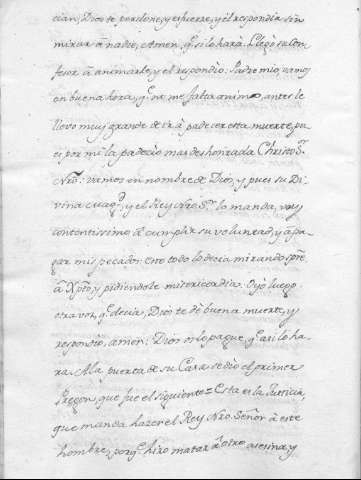 cian, Dios te perdone, y esfuerze, y él respondia sin
mirar á nadie, Amen, q.e si lo hará. Llegò su Con-
fesor á animarle, y el respondio. Padre mio, vamos
en buena hora, q.e no me falta animo, antes le
llevo muy grande de ir à padecer esta muerte, pu-
es por mi la padecio mas deshonrada Christo S.r
Nro: vamos en nombre de Dios, y pues su Di-
vina y el Rey Nro S.r lo manda, voy
contentissimo à cumplir su voluntad, y á pa-
gar mis pecados: esto todo lo decia mirando spre
á Xpto, y pidiendole misericordia. Oyò luego
otra voz, q.e decia, Dios te dè buena muerte, y
respondio, amen: Dios os lo pague, q.e asi lo ha-
ra. A la puerta de su Casa se dio el primer
Pregon, que fue el siguiente = Esta es la Justicia,
que manda hazer el Rey Nro Señor à este
hombre, porq.e hizo matar à otro asesina, y